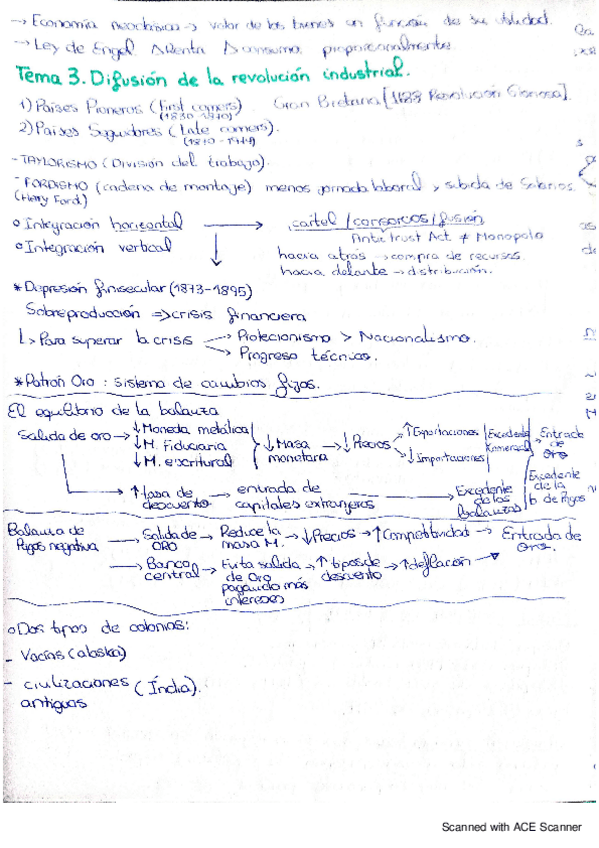 → Economía neoclásica → valor de los bienes en función de su utilidad.
→ Ley de Engel. Δ Renta Δ consumo proporcionalmente
Tema 3. Difusión de la revolución industrial.
1) Países Pioneros (first comers) Gran Bretaña [1688 Revolución Gloriosa].
(1830-1870)
2) Países Seguidores (Late comers).
(1870-1914)
- TAYLORISMO (División del trabajo).
- FORDISMO (cadena de montaje) menos jornada laboral y subida de Salarios.
(Henry Ford)
o Integración horizontal → cartel / consorcios / fusión
Antitrust Act ≠ Monopolio
o Integración vertical ↓ hacia atrás → compra de recursos.
hacia delante → distribución.
* Depresión finisecular (1873-1895)
Sobreproducción => crisis financiera
↳ Para superar la crisis → Proteccionismo > Nacionalismo.
→ Progreso técnicos.
* Patrón Oro : sistema de cambios fijos.
El equilibrio de la balanza
Salida de oro → ↓ Moneda metálica ↓ M. Fiduciaria ↓ M. escritural ↓ Masa monetaria → ↓ Precios → ↑ Exportaciones ↓ Importaciones Excedente Comercial Entrada de Oro
→ ↑ Tasa de descuento → entrada de capitales extranjeros → Excedente de las balanzas Excedente de la b de Pagos
Balanza de Pagos negativa → Salida de ORO → Reduce la masa M. → ↓ Precios → ↑ Competitividad → Entrada de Oro.
→ Banco central → Evita salida de Oro pagando más intereses → ↑ tipos de descuento → ↑ deflación
o Dos tipos de colonias:
- Vacías (alaska)
- civilizaciones (Índia).
antiguas
Scanned with ACE Scanner